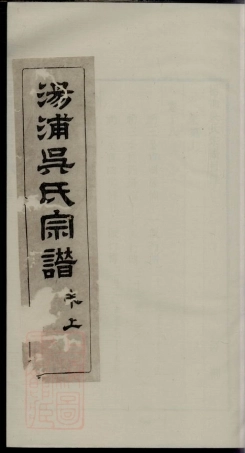 湯浦吳氏宗譜
卷上